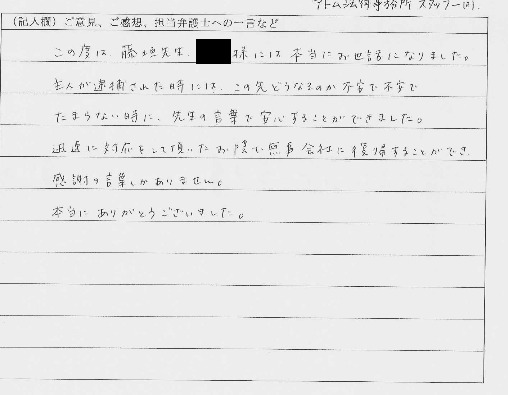 アトム法律事務所 スタッフ一同
(記入欄)ご意見、ご感想、担当弁護士への一言など
この度は、藤垣先生、様には本当にお世話になりました。
主人が逮捕された時には、この先どうなるのか不安で不安で
たまらない時に、先生の言葉で安心することができました。
迅速に対応をして頂いたお陰で無事会社に復帰することができ、
感謝の言葉しかありません。
本当にありがとうございました。